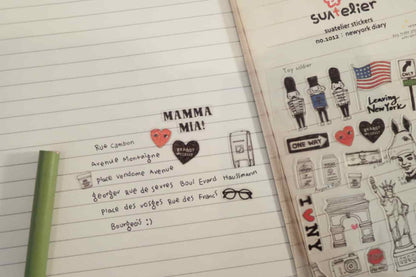 MAMMA
MIA!
Rue Cambon
Avenue Montaigne
place Vendome Avenue
George V Rue de Sevres Boul Evard Haussmann
Place des vosges Rue des Francs
Bourgeois :)
suatelier
suatelier stickers
no.1012 : newyork diary
Toy soldier
Leaving
New York
ONE WAY
I ♥ NY